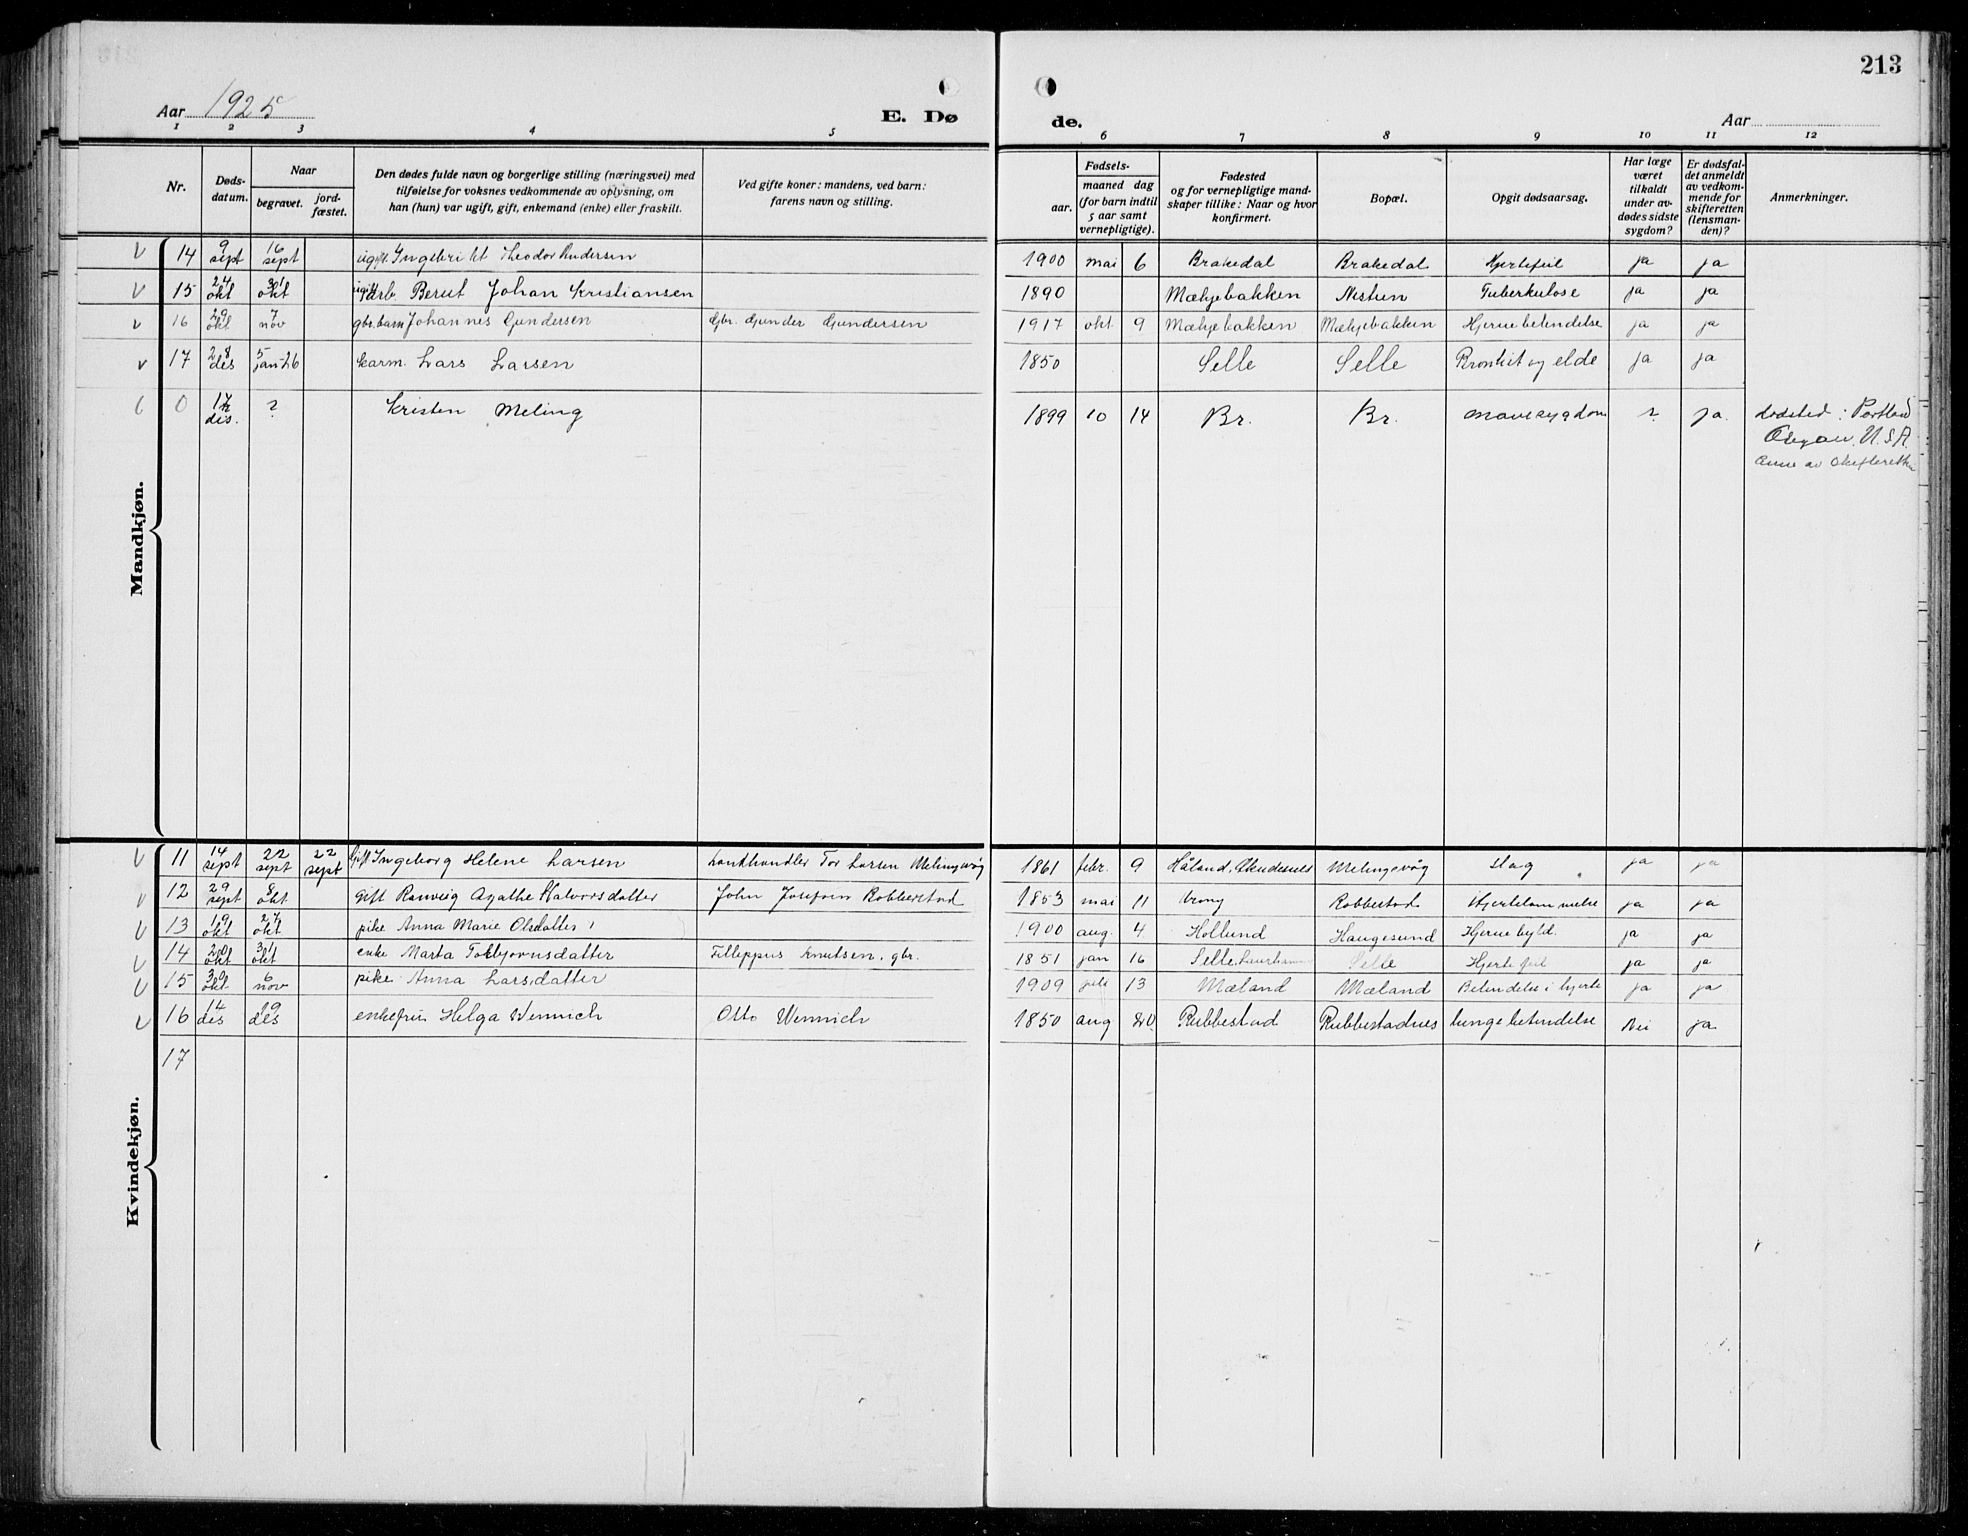 213
Aar 1925
E. Dø
de.
Aar
1 2 3 4 5 6 7 8 9 10 11 12
Nr.
Døds-
datum.
Naar
begravet.
jord-
fæstet.
Den dødes fulde navn og borgerlige stilling (næringsvei) med
tilføielse for voksnes vedkommende av oplysning, om
han (hun) var ugift, gift, enkemand (enke) eller fraskilt.
Ved gifte koner: mandens, ved barn:
farens navn og stilling.
Fødsels-
aar.
maaned dag
(for barn indtil
5 aar samt
vernepligtige).
Fødested
og for vernepligtige mand-
skaper tillike: Naar og hvor
konfirmert.
Bopæl.
Opgit dødsaarsag.
Har læge
været
tilkaldt
under av-
dødes sidste
sygdom?
Er dødsfal-
det anmeldt
av vedkom-
mende for
skifteretten
(lensman-
den)?
Anmerkninger.
Mandkjøn.
14 9 sept 16 sept ugift Ingebrikt Theodor Andersen 1900 mai 6 Brakedal Brakedal Hjertefeil ja ja
15 24 okt 31 okt ugift arb. Berut Johan Kristiansen 1890 Mæhjebakken Nistun Tuberkulose ja ja
16 29 okt 7 nov gbr. barn Johannes Gundersen Gbr. Gunder Gundersen 1917 okt. 9 Mæhjebakken Mæhjebakken Hjernebetendelse ja ja
17 28 des 5 jan-26 Karm. Lars Larsen 1850 Selle Selle Bronkit og elde ja ja
0 des. ? Kristen Meling 1899 10 14 Br. Br. mavesygdom ? ja. dødsted: Portland
U.S.A.
av skifteretten
Kvindekjøn.
11 14 sept 22 sept 22 sept Gift Ingeborg Helene Larsen Landhandler Tor Larsen Melingsvåg 1861 febr. 9 Håland, Akudesnes Melingsvåg slag ja ja
12 29 sept 8 okt gift Ranveig Agathe Halvorsdatter John Josefsen Robberstad 1853 mai 11 Vrong Robbestad ja ja
13 19 okt 27 okt pike Anna Marie Olsdatter 1900 aug. 4 Hollund Haugesund Hjernebyld. ja ja
14 20 okt 31 okt enke Marta Torbjørnsdatter Filleppus Knutsen, gbr. 1851 jan 16 Selle Selle Hjertefeil ja ja
15 30 okt 6 nov pike Anna Larsdatter 1909 juli 13 Mæland Mæland Betendelse i hjerte ja ja
16 14 des 19 des enkefru Helga Wennich Otto Wennich 1850 aug 20 Rubbestad Rubbestadnes lungebetendelse Nei ja
17